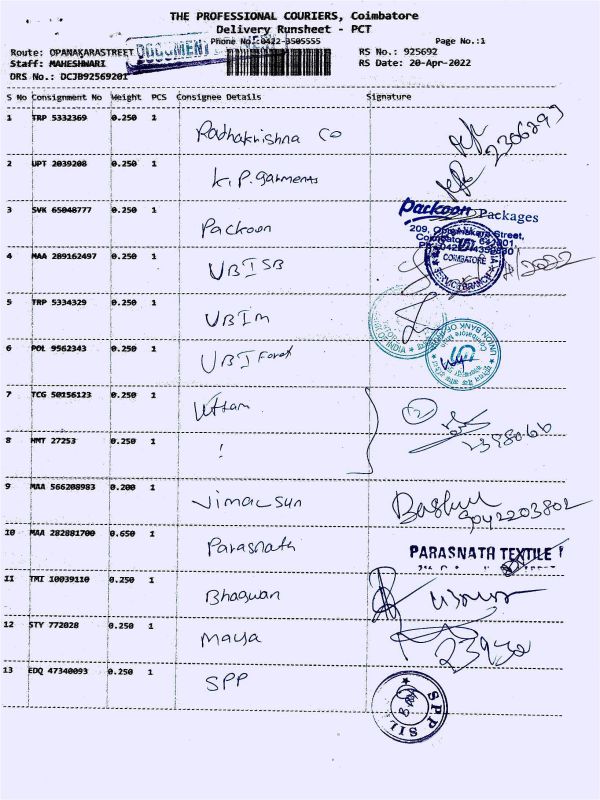 THE PROFESSIONAL COURIERS, Coimbatore
Delivery Runsheet - PCT
Phone No.:0422-3505555 Page No.:1
Route: OPANAKARASTREET DOCUMENT RS No.: 925692
Staff: MAHESHWARI RS Date: 20-Apr-2022
DRS No.: DCJB92569201
S No Consignment No Weight PCS Consignee Details Signature
1 TRP 5332369 0.250 1 Radhakrishna Co
2 UPT 2039208 0.250 1 K.P. garments
3 SVK 65048777 0.250 1 Packoon Packoon Packages
209, Street,
Coimbatore 641001.
COIMBATORE
4 MAA 289162497 0.250 1 UBI SB /2022
5 TRP 5334329 0.250 1 UBI M
6 POL 9562343 0.250 1 UBI UNION BANK OF
7 TCG 50156123 0.250 1 Uttam 2
8 HMT 27253 0.250 1 !
9 MAA 566208983 0.200 1 Vimal Sun 9042203802
10 MAA 282881700 0.650 1 Parasnath PARASNATH TEXTILE
11 TMI 10039110 0.250 1 Bhagwan
12 STY 772028 0.250 1 Maya
13 EDQ 47340093 0.250 1 SPP SPP SIL